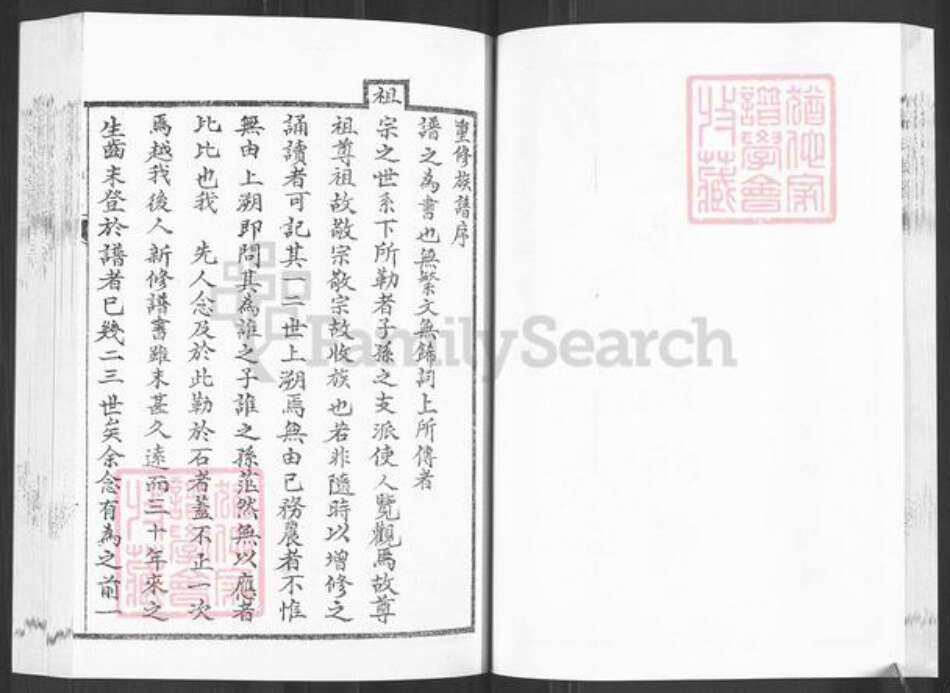 重修族譜序
譜之為書也無繁文無飾詞上所傳者
祖
宗之世系下所勒者子孫之支派使人覽觀焉故尊
祖尊祖故敬宗敬宗故收族也若非隨時以增修之
誦讀者可記其一二世上朔焉無由已務農者不惟
無由上朔即問其為誰之子誰之孫茫然無以應者
比比也我 先人念及於此勒於石者蓋不止一次
焉越我後人新修譜書雖未甚久遠而三十年來之
生齒未登於譜者已幾二三世矣余念有為之前一
FamilySearch
猶他家
譜學會
收藏
猶他家
譜學會
收藏